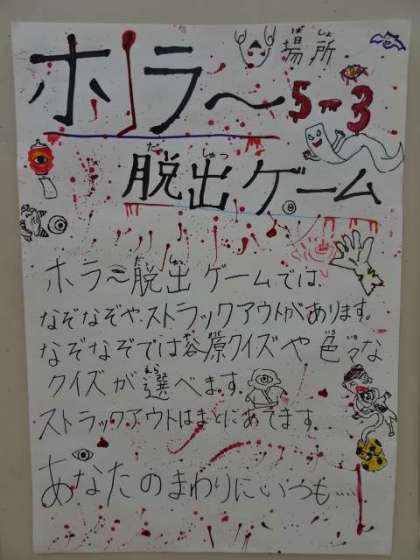 ホラ〜
場所
5-3
脱出ゲーム
ホラ〜脱出ゲームでは、
なぞなぞや、ストラックアウトがあります。
なぞなぞでは谷原クイズや色々な
クイズが選べます。
ストラックアウトはまとにあてます。
あなたのまわりにいつも……